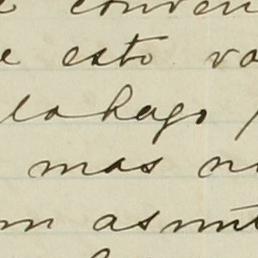 conven
e esto va
lo hago
mas n
asunt